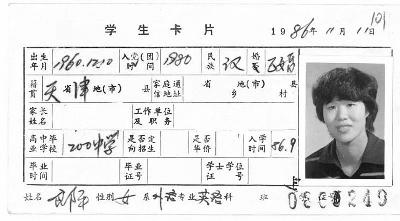 学生卡片 1986年11月11日
101
出生年月 1960.12.10 入党(团)时间 1980 民族 汉 婚否 已婚
籍贯 天 省 津 地(市) 县 家庭通信地址 省 地(市) 县 乡 村
家长姓名 工作单位及职务
高中毕业学校 200中学 是否定向招生 是否华侨 入学时间 86.9
毕业时间 毕业证号 学士学位证号
姓名 性别 女 系 外语 专业 英语 科 班 学证